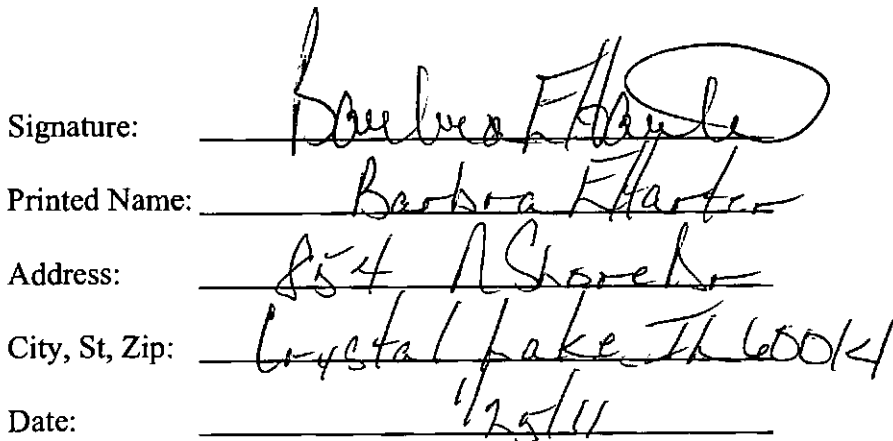 Signature: Barbra E Harter
Printed Name: Barbra E Harter
Address: 854 N Shore Dr
City, St, Zip: Crystal Lake, IL 60014
Date: 1/25/11